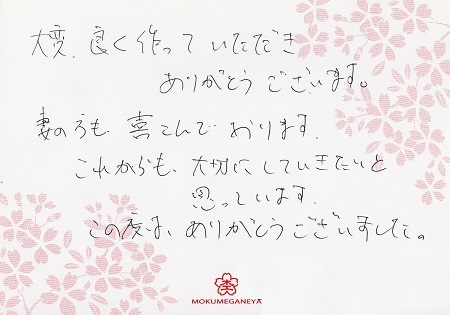 大変、良く作っていただき
ありがとうございます。
妻のうも 喜こんで おります.
これからも、大切にしていきたいと
思っています.
この度は、ありがとうございました。
MOKUMEGANEYA